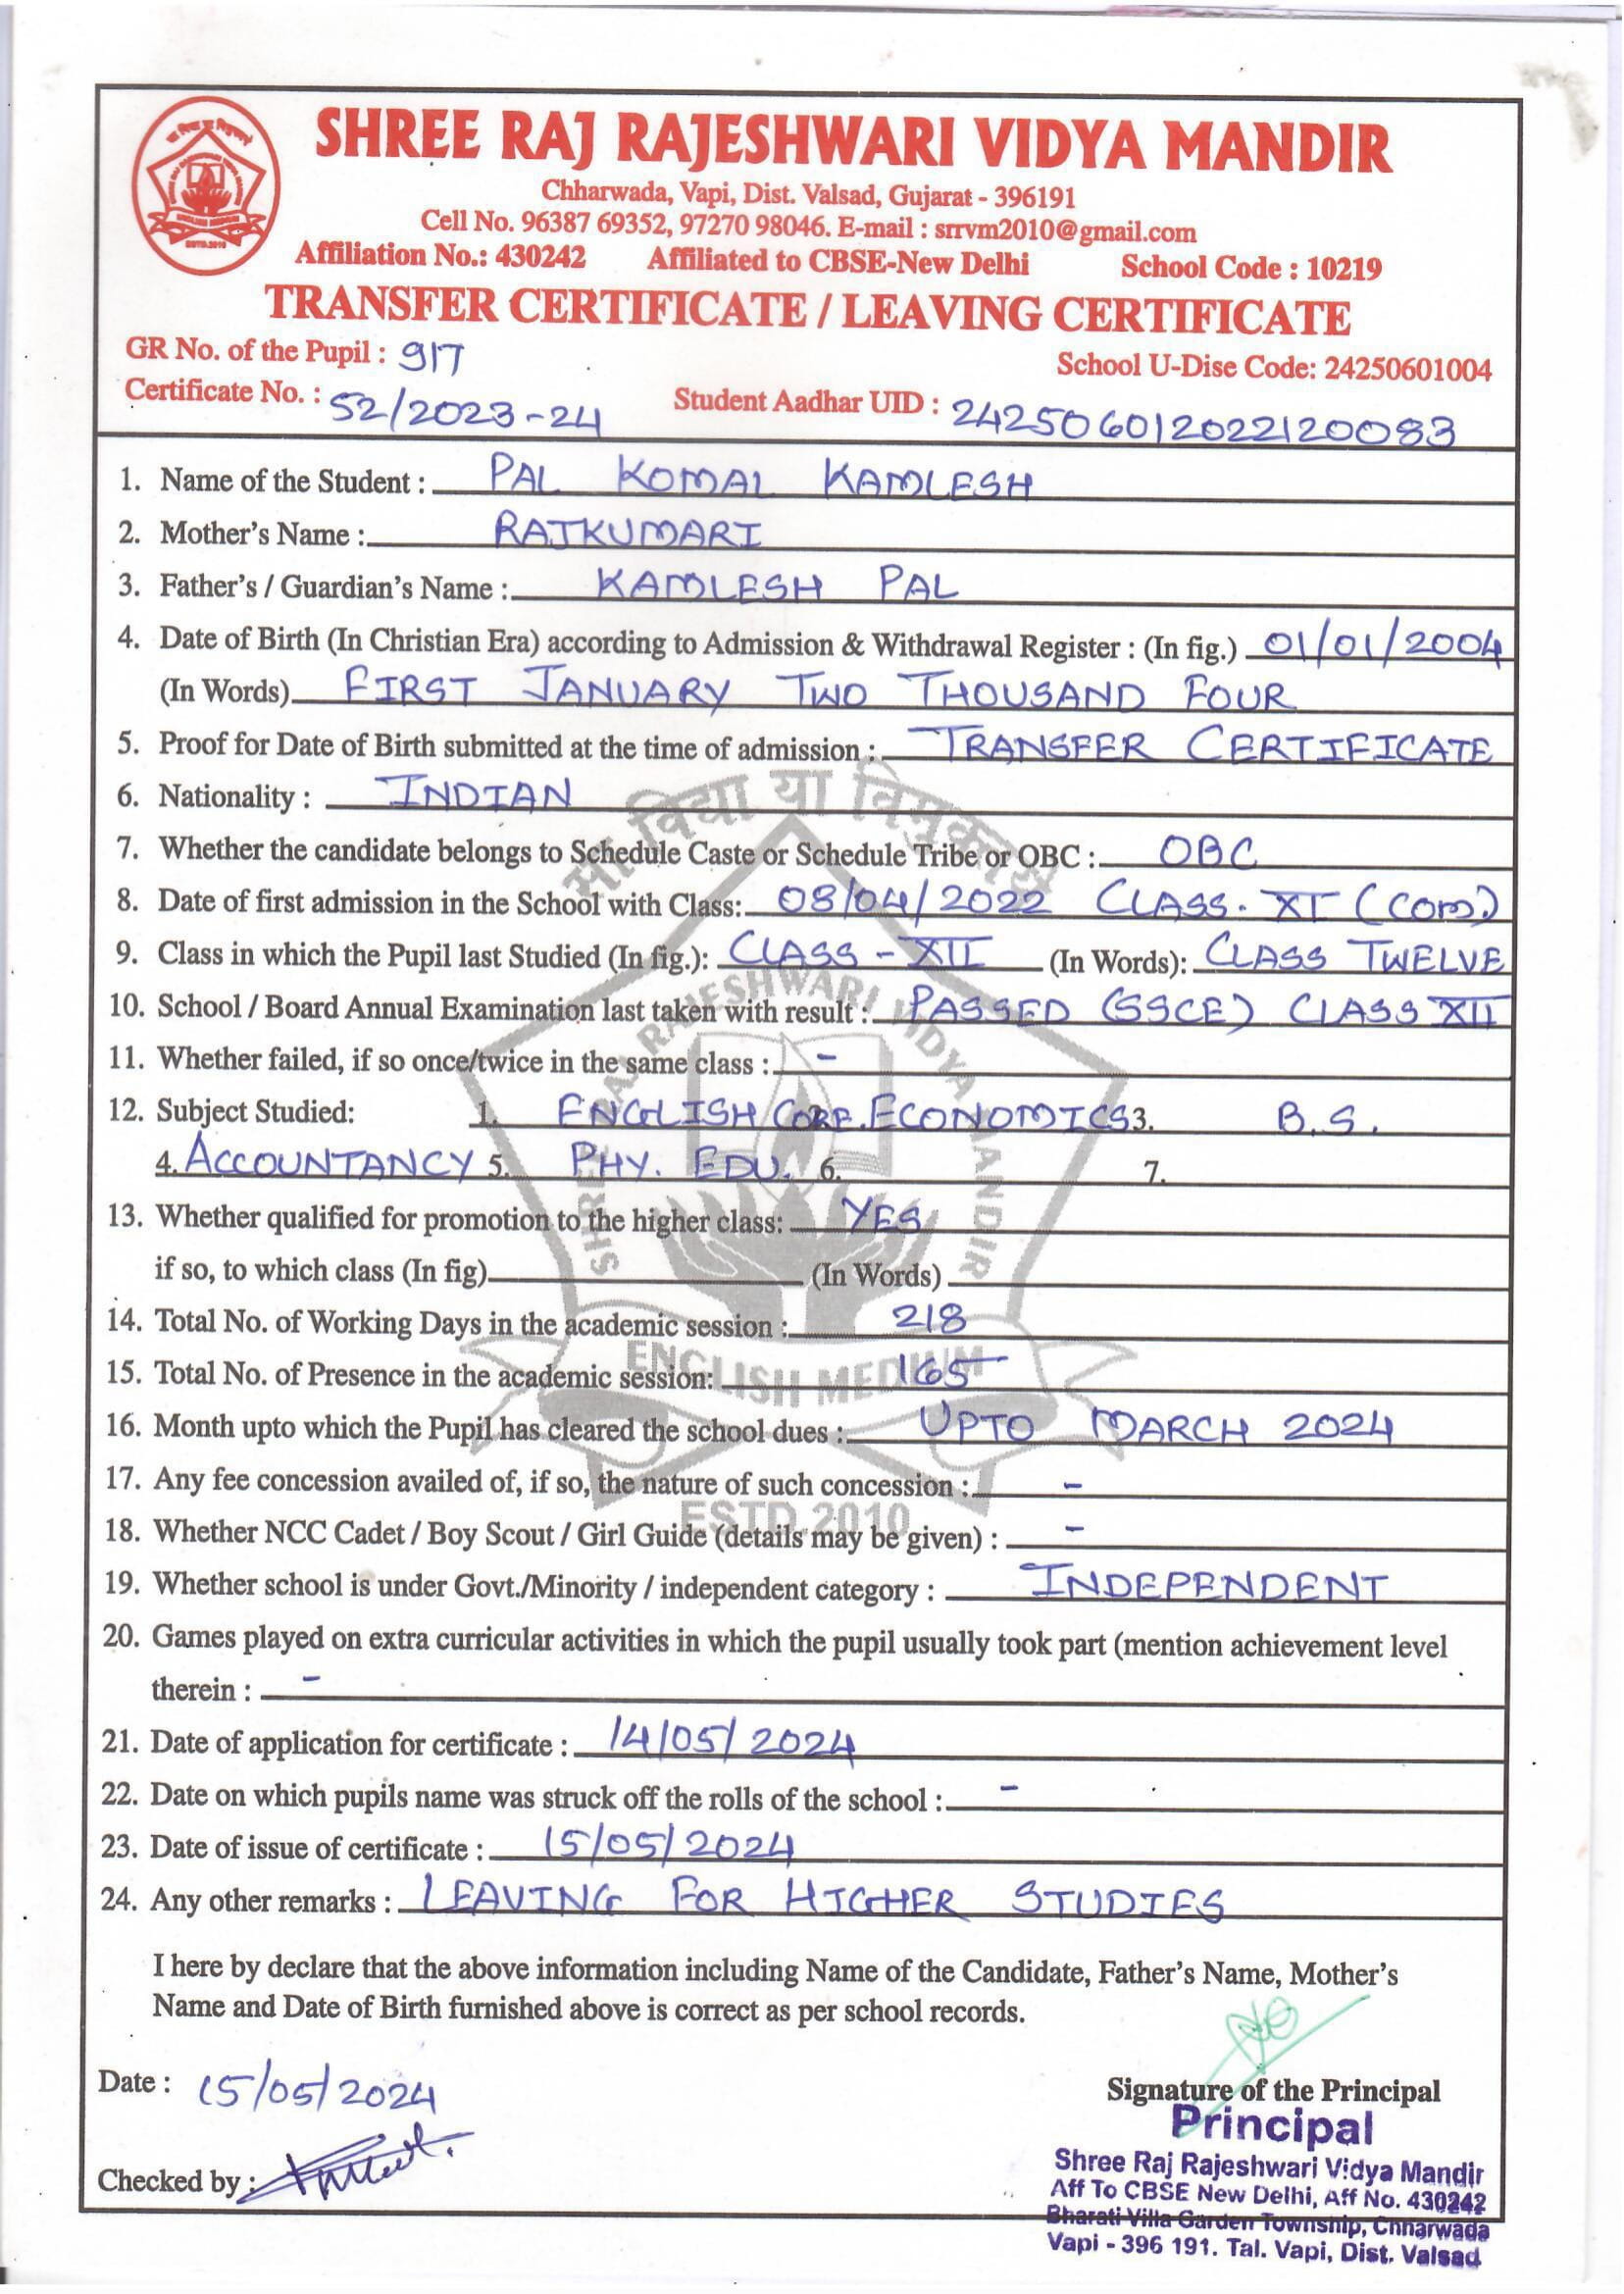 SHREE RAJ RAJESHWARI VIDYA MANDIR
Chharwada, Vapi, Dist. Valsad, Gujarat - 396191
Cell No. 96387 69352, 97270 98046. E-mail : srrvm2010@gmail.com
Affiliation No.: 430242 Affiliated to CBSE-New Delhi School Code : 10219
TRANSFER CERTIFICATE / LEAVING CERTIFICATE
GR No. of the Pupil : 917 School U-Dise Code: 24250601004
Certificate No. : 52/2023-24 Student Aadhar UID : 242506012022120083
1. Name of the Student : PAL KOMAL KAMLESH
2. Mother's Name : RAJKUMARI
3. Father's / Guardian's Name : KAMLESH PAL
4. Date of Birth (In Christian Era) according to Admission & Withdrawal Register : (In fig.) 01/01/2004
(In Words) FIRST JANUARY TWO THOUSAND FOUR
5. Proof for Date of Birth submitted at the time of admission : TRANSFER CERTIFICATE
6. Nationality : INDIAN
7. Whether the candidate belongs to Schedule Caste or Schedule Tribe or OBC : OBC
8. Date of first admission in the School with Class: 08/04/2022 CLASS. XI (COM.)
9. Class in which the Pupil last Studied (In fig.): CLASS - XII (In Words): CLASS TWELVE
10. School / Board Annual Examination last taken with result : PASSED (SSCE) CLASS XII
11. Whether failed, if so once/twice in the same class : -
12. Subject Studied: 1. ENGLISH CORE 2. ECONOMICS 3. B.S.
4. ACCOUNTANCY 5. PHY. EDU. 6. 7.
13. Whether qualified for promotion to the higher class: YES
if so, to which class (In fig) (In Words)
14. Total No. of Working Days in the academic session : 218
15. Total No. of Presence in the academic session: 165
16. Month upto which the Pupil has cleared the school dues : UPTO MARCH 2024
17. Any fee concession availed of, if so, the nature of such concession : -
18. Whether NCC Cadet / Boy Scout / Girl Guide (details may be given) : -
19. Whether school is under Govt./Minority / independent category : INDEPENDENT
20. Games played on extra curricular activities in which the pupil usually took part (mention achievement level
therein : -
21. Date of application for certificate : 14/05/2024
22. Date on which pupils name was struck off the rolls of the school : -
23. Date of issue of certificate : 15/05/2024
24. Any other remarks : LEAVING FOR HIGHER STUDIES
I here by declare that the above information including Name of the Candidate, Father's Name, Mother's
Name and Date of Birth furnished above is correct as per school records.
Date : 15/05/2024
Signature of the Principal
Principal
Shree Raj Rajeshwari Vidya Mandir
Aff To CBSE New Delhi, Aff No. 430242
Bharati Villa Garden Township, Chharwada
Vapi - 396 191. Tal. Vapi, Dist. Valsad
Checked by :
सा विद्या या विमुक्तये
SHREE RAJ RAJESHWARI VIDYA MANDIR
ENGLISH MEDIUM
ESTD 2010